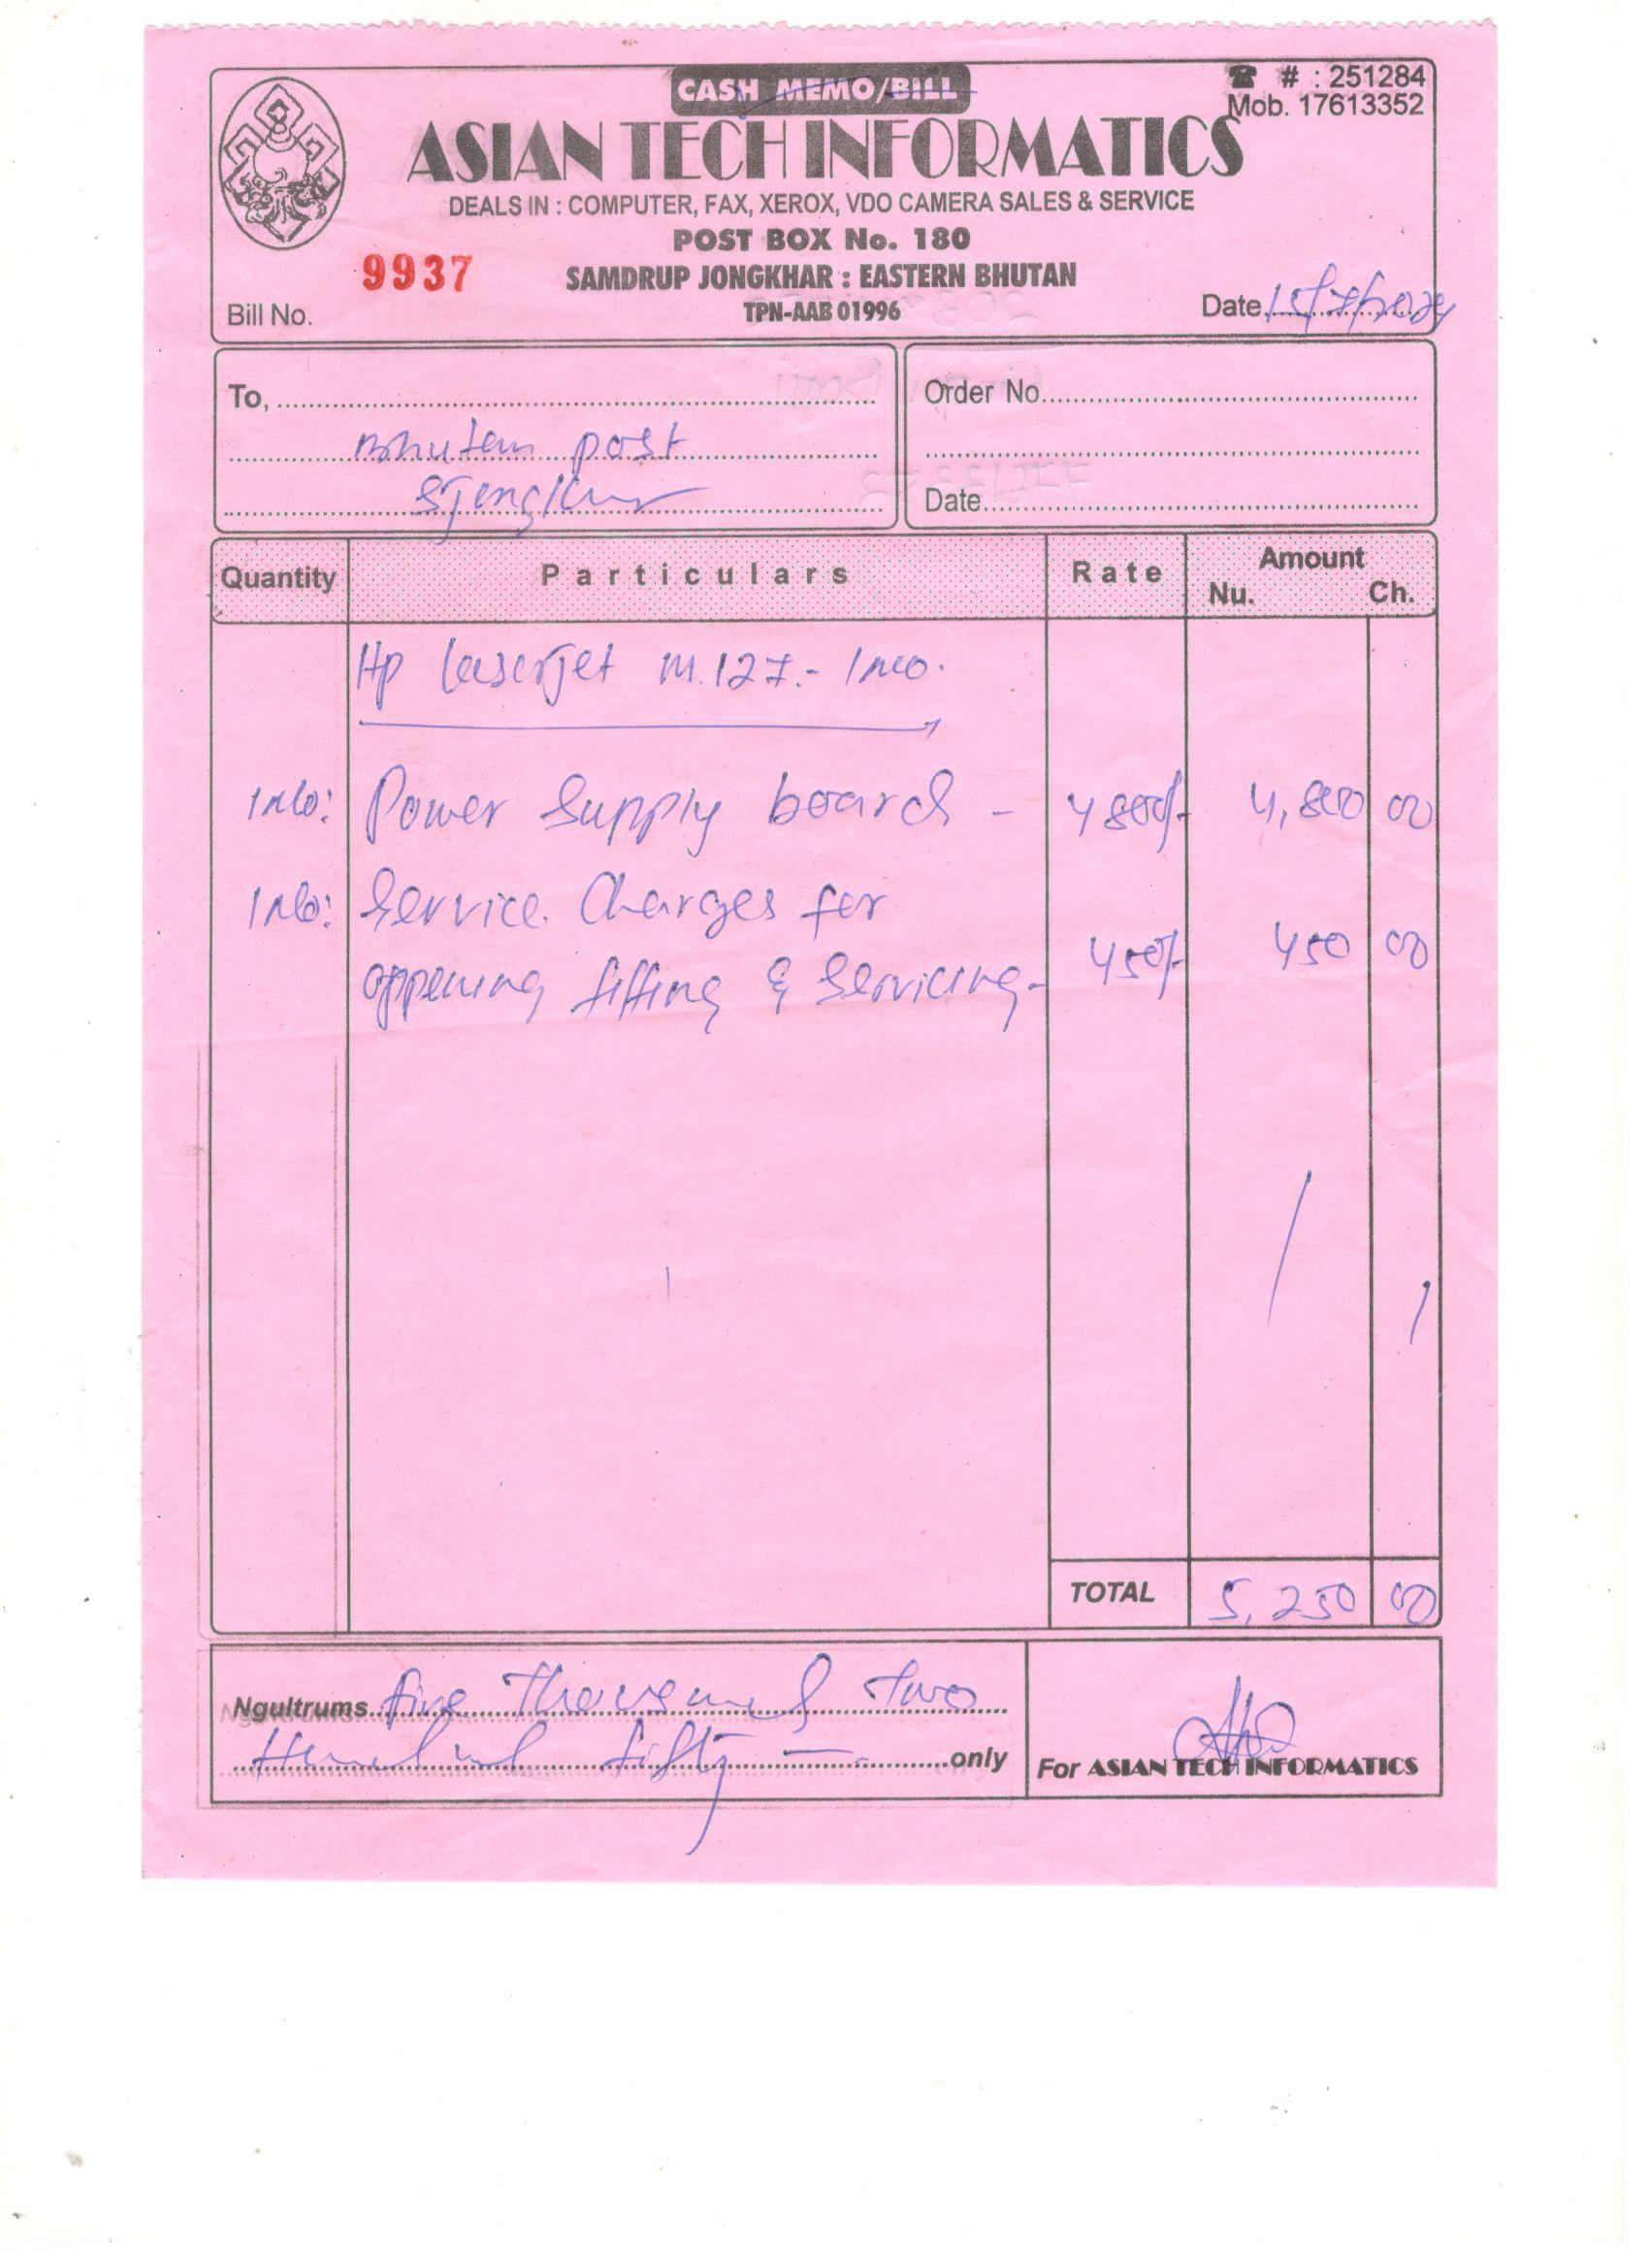 CASH MEMO/BILL
☎ # : 251284
Mob. 17613352
ASIAN TECH INFORMATICS
DEALS IN : COMPUTER, FAX, XEROX, VDO CAMERA SALES & SERVICE
POST BOX No. 180
9937
SAMDRUP JONGKHAR : EASTERN BHUTAN
Bill No.
TPN-AAB 01996
Date 15/7/2024
To,
Bhutan post
Sjongkhar
Order No.
Date
Quantity Particulars Rate Amount
Nu. Ch.
Hp laserjet M.127.- 1no.
1no: Power Supply board - 4800/- 4,800 00
1no: Service Charges for
oppening fitting & Servicing- 450/- 450 00
TOTAL 5,250 00
Ngultrums five Thousand two
Hundred fifty only
For ASIAN TECH INFORMATICS